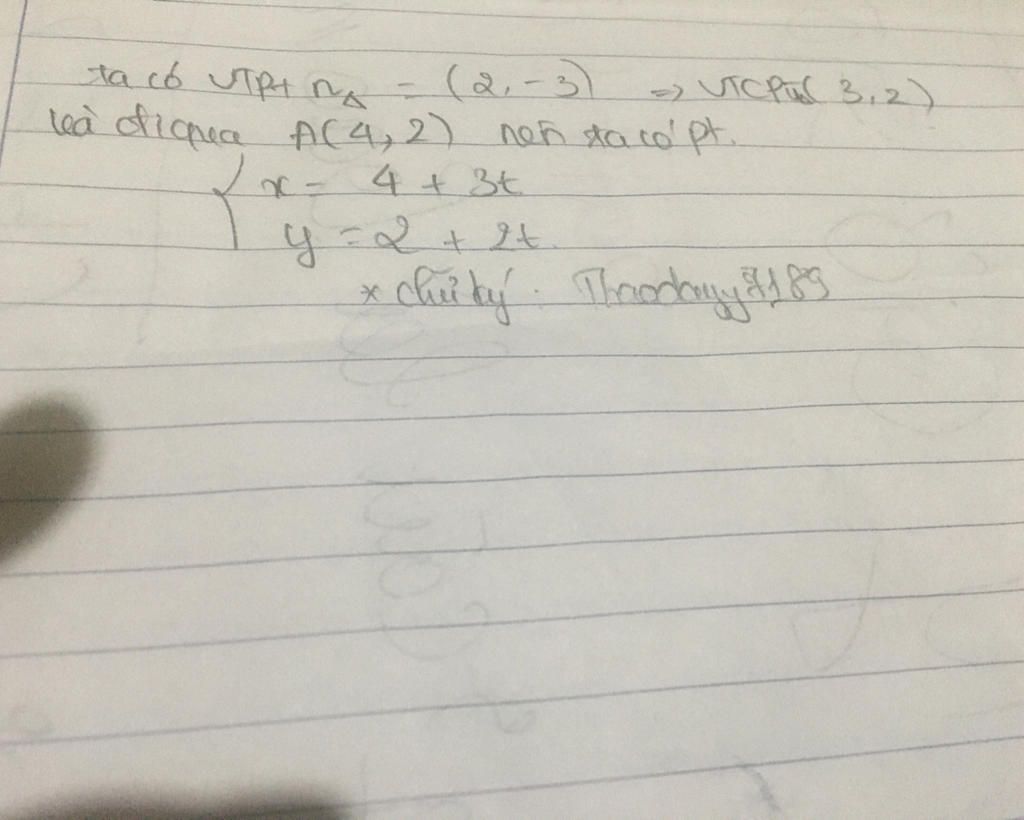 ta có VTPt n_Δ = (2, -3) => VTCP u( 3, 2)
và đi qua A(4, 2) nên ta có pt.
{ x = 4 + 3t
y = 2 + 2t
* chữ ký : Thaodayy7189